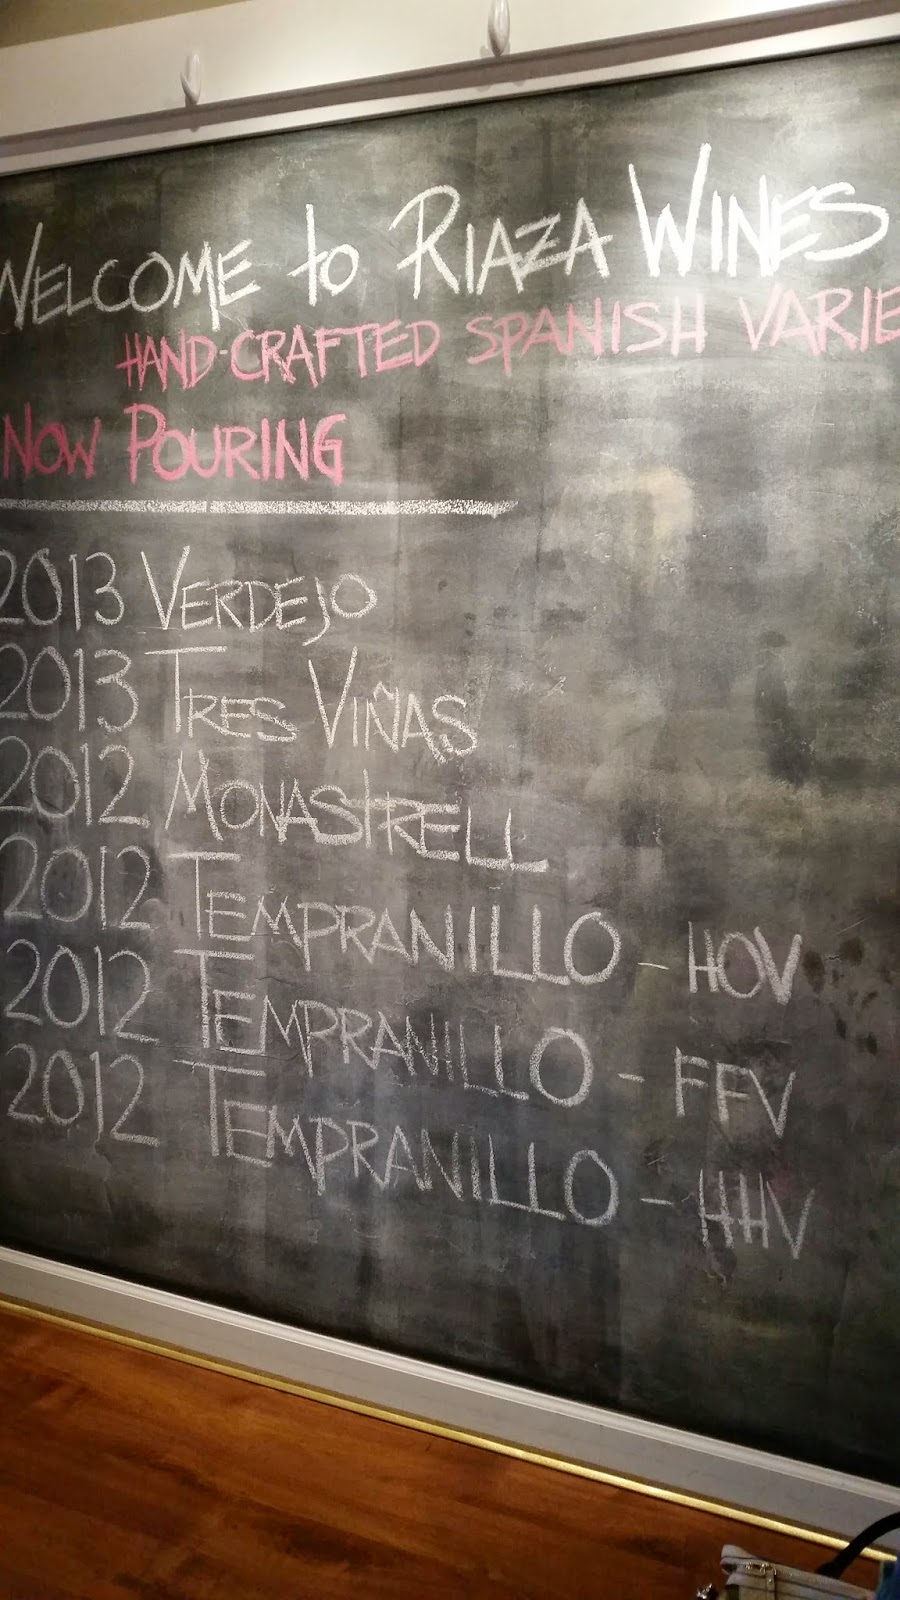 WELCOME to RIAZA WINES
HAND-CRAFTED SPANISH VARIE
NOW POURING
2013 VERDEJO
2013 TRES VIÑAS
2012 MONASTRELL
2012 TEMPRANILLO - HOV
2012 TEMPRANILLO - FFV
2012 TEMPRANILLO - HHV